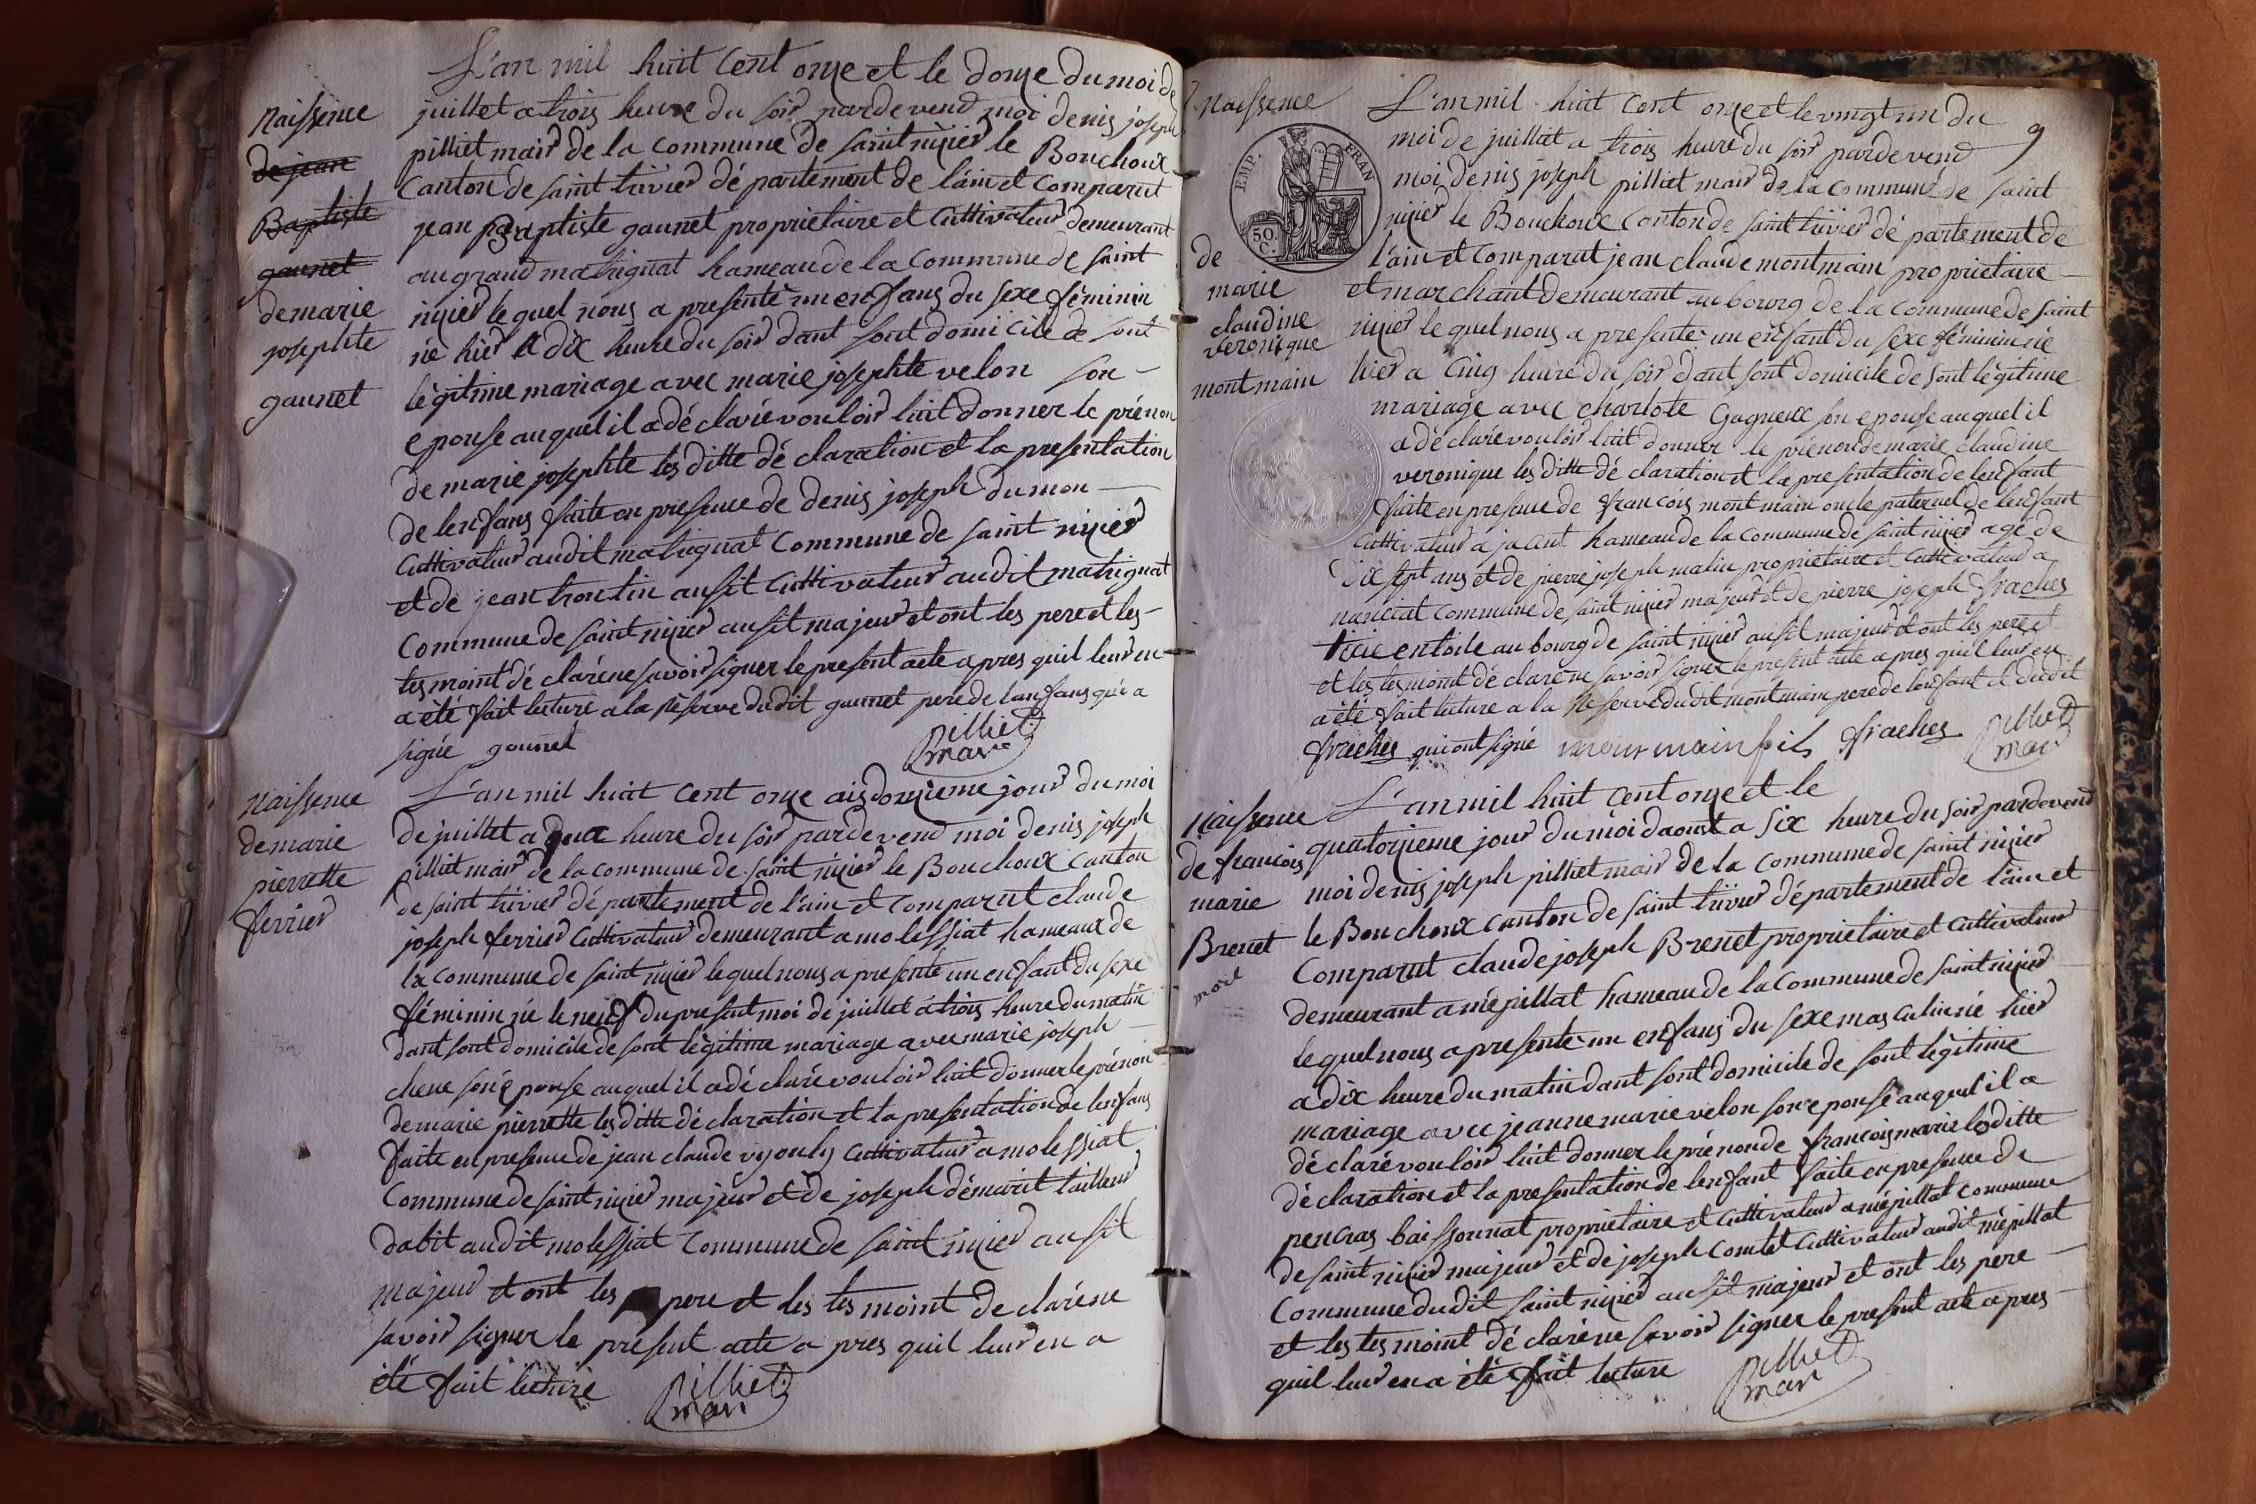 L'an mil huit cent onze et le douze du moi de
naissence
de jean
Baptiste
gaunet
de marie
josephte
gaunet
juillet a trois heure du soir pardevend moi denis joseph
pilliet mair de la commune de saint nizier le Bouchoux
canton de saint trivier département de l'ain et comparut
jean Baptiste gaunet propriétaire et cultivateur demeurant
au grand matrignat hameau de la commune de saint
nizier lequel nous a presenté un enfans du sexe féminin
né hier a dix heure du soir dant sont domicile de sont
légitime mariage avec marie josephte velon son
epouse auquel il a déclaré vouloir luit donner le prénon
de marie josephte les ditte déclaration et la presentation
de lenfans faite en presence de denis joseph dumon
cultivateur audit matrignat commune de saint nizier
et de jean trontin ausit cultivateur audit matrignat
commune de saint nizier ausit majeur et ont les pere et les
tesmoint déclaré ne savoir signer le present acte apres quil leur en
a été fait lecture a la réserve dudit gaunet pere de lanfans qui a
signé gaunet
pilliet
mair
naissence
de marie
pierrette
ferrier
L'an mil huit cent onze douzieme jour du moi
de juillet a deux heure du soir pardevend moi denis joseph
pilliet mair de la commune de saint nizier le Bouchoux canton
de saint trivier département de l'ain et comparut claude
joseph ferrier cultivateur demeurant a molessiat hameaux de
la commune de saint nizier lequel nous a presenté un enfant du sexe
féminin né le neuf du present moi de juillet a trois heure du matin
dant sont domicile de sont légitime mariage avec marie joseph
chene son epouse auquel il a déclaré vouloir luit donner le prénon
de marie pierrette les ditte déclaration et la presentation de lenfans
faite en presence de jean claude cultivateur a molessiat
commune de saint nizier majeur et de joseph démarit tailleur
dabit audit molessiat commune de saint nizier ausit
majeur et ont les pere et les tesmoint declaré ne
savoir signer le présent acte a pres quil leur en a
été fait lecture
pilliet
mair
naissence
de
marie
claudine
veronique
montmain
9
EMP. FRAN
50 C.
L'an mil huit cent onze et le vingt un du
moi de juillet a trois heure du soir pardevend
moi denis joseph pilliet mair de la commune de saint
nizier le Bouchoux canton de saint trivier département de
l'ain et comparut jean claude montmain propriétaire
et marchant demeurant au bourg de la commune de saint
nizier lequel nous a presenté un enfant du sexe féminin né
hier a cinq heure du soir dant sont domicile de sont légitime
mariage avec charlote Gagneux son epouse auquel il
a déclaré vouloir luit donner le prénon de marie claudine
veronique les ditte déclaration et la presentation de lenfant
faite en presence de francois montmain oncle paternel de lenfant
cultivateur a jacent hameau de la commune de saint nizier agé de
dix sept ans et de pierre joseph malin propriétaire et cultivateur a
nanciat commune de saint nizier majeur et de pierre joseph fraches
en toile au bourg de saint nizier ausit majeur et ont les pere et
et les tesmoint déclaré ne savoir signer le present acte apres quil leur en
a été fait lecture a la réserve dudit montmain pere de lenfant et dudit
fraches qui ont signé montmain fils fraches
pilliet
mair
naissence
de francois
marie
Brenet
mort
L'an mil huit cent onze et le
quatorzieme jour du moi daoust a six heure du soir pardevend
moi denis joseph pilliet mair de la commune de saint nizier
le Bouchoux canton de saint trivier département de l'ain et
comparut claude joseph Brenet propriétaire et cultivateur
demeurant a mépillat hameau de la commune de saint nizier
lequel nous a presenté un enfans du sexe masculin né hier
a dix heure du matin dant sont domicile de sont légitime
mariage avec jeanne marie velon son epouse auquel il a
déclaré vouloir luit donner le prénon de francois marie les ditte
déclaration et la presentation de lenfant faite en presence de
pencras baissonnat propriétaire et cultivateur a mépillat commune
de saint nizier majeur et de joseph comtet cultivateur audit mépillat
commune dudit saint nizier ausit majeur et ont les pere
et les tesmoint déclaré ne savoir signer le present acte apres
quil leur en a été fait lecture
pilliet
mair